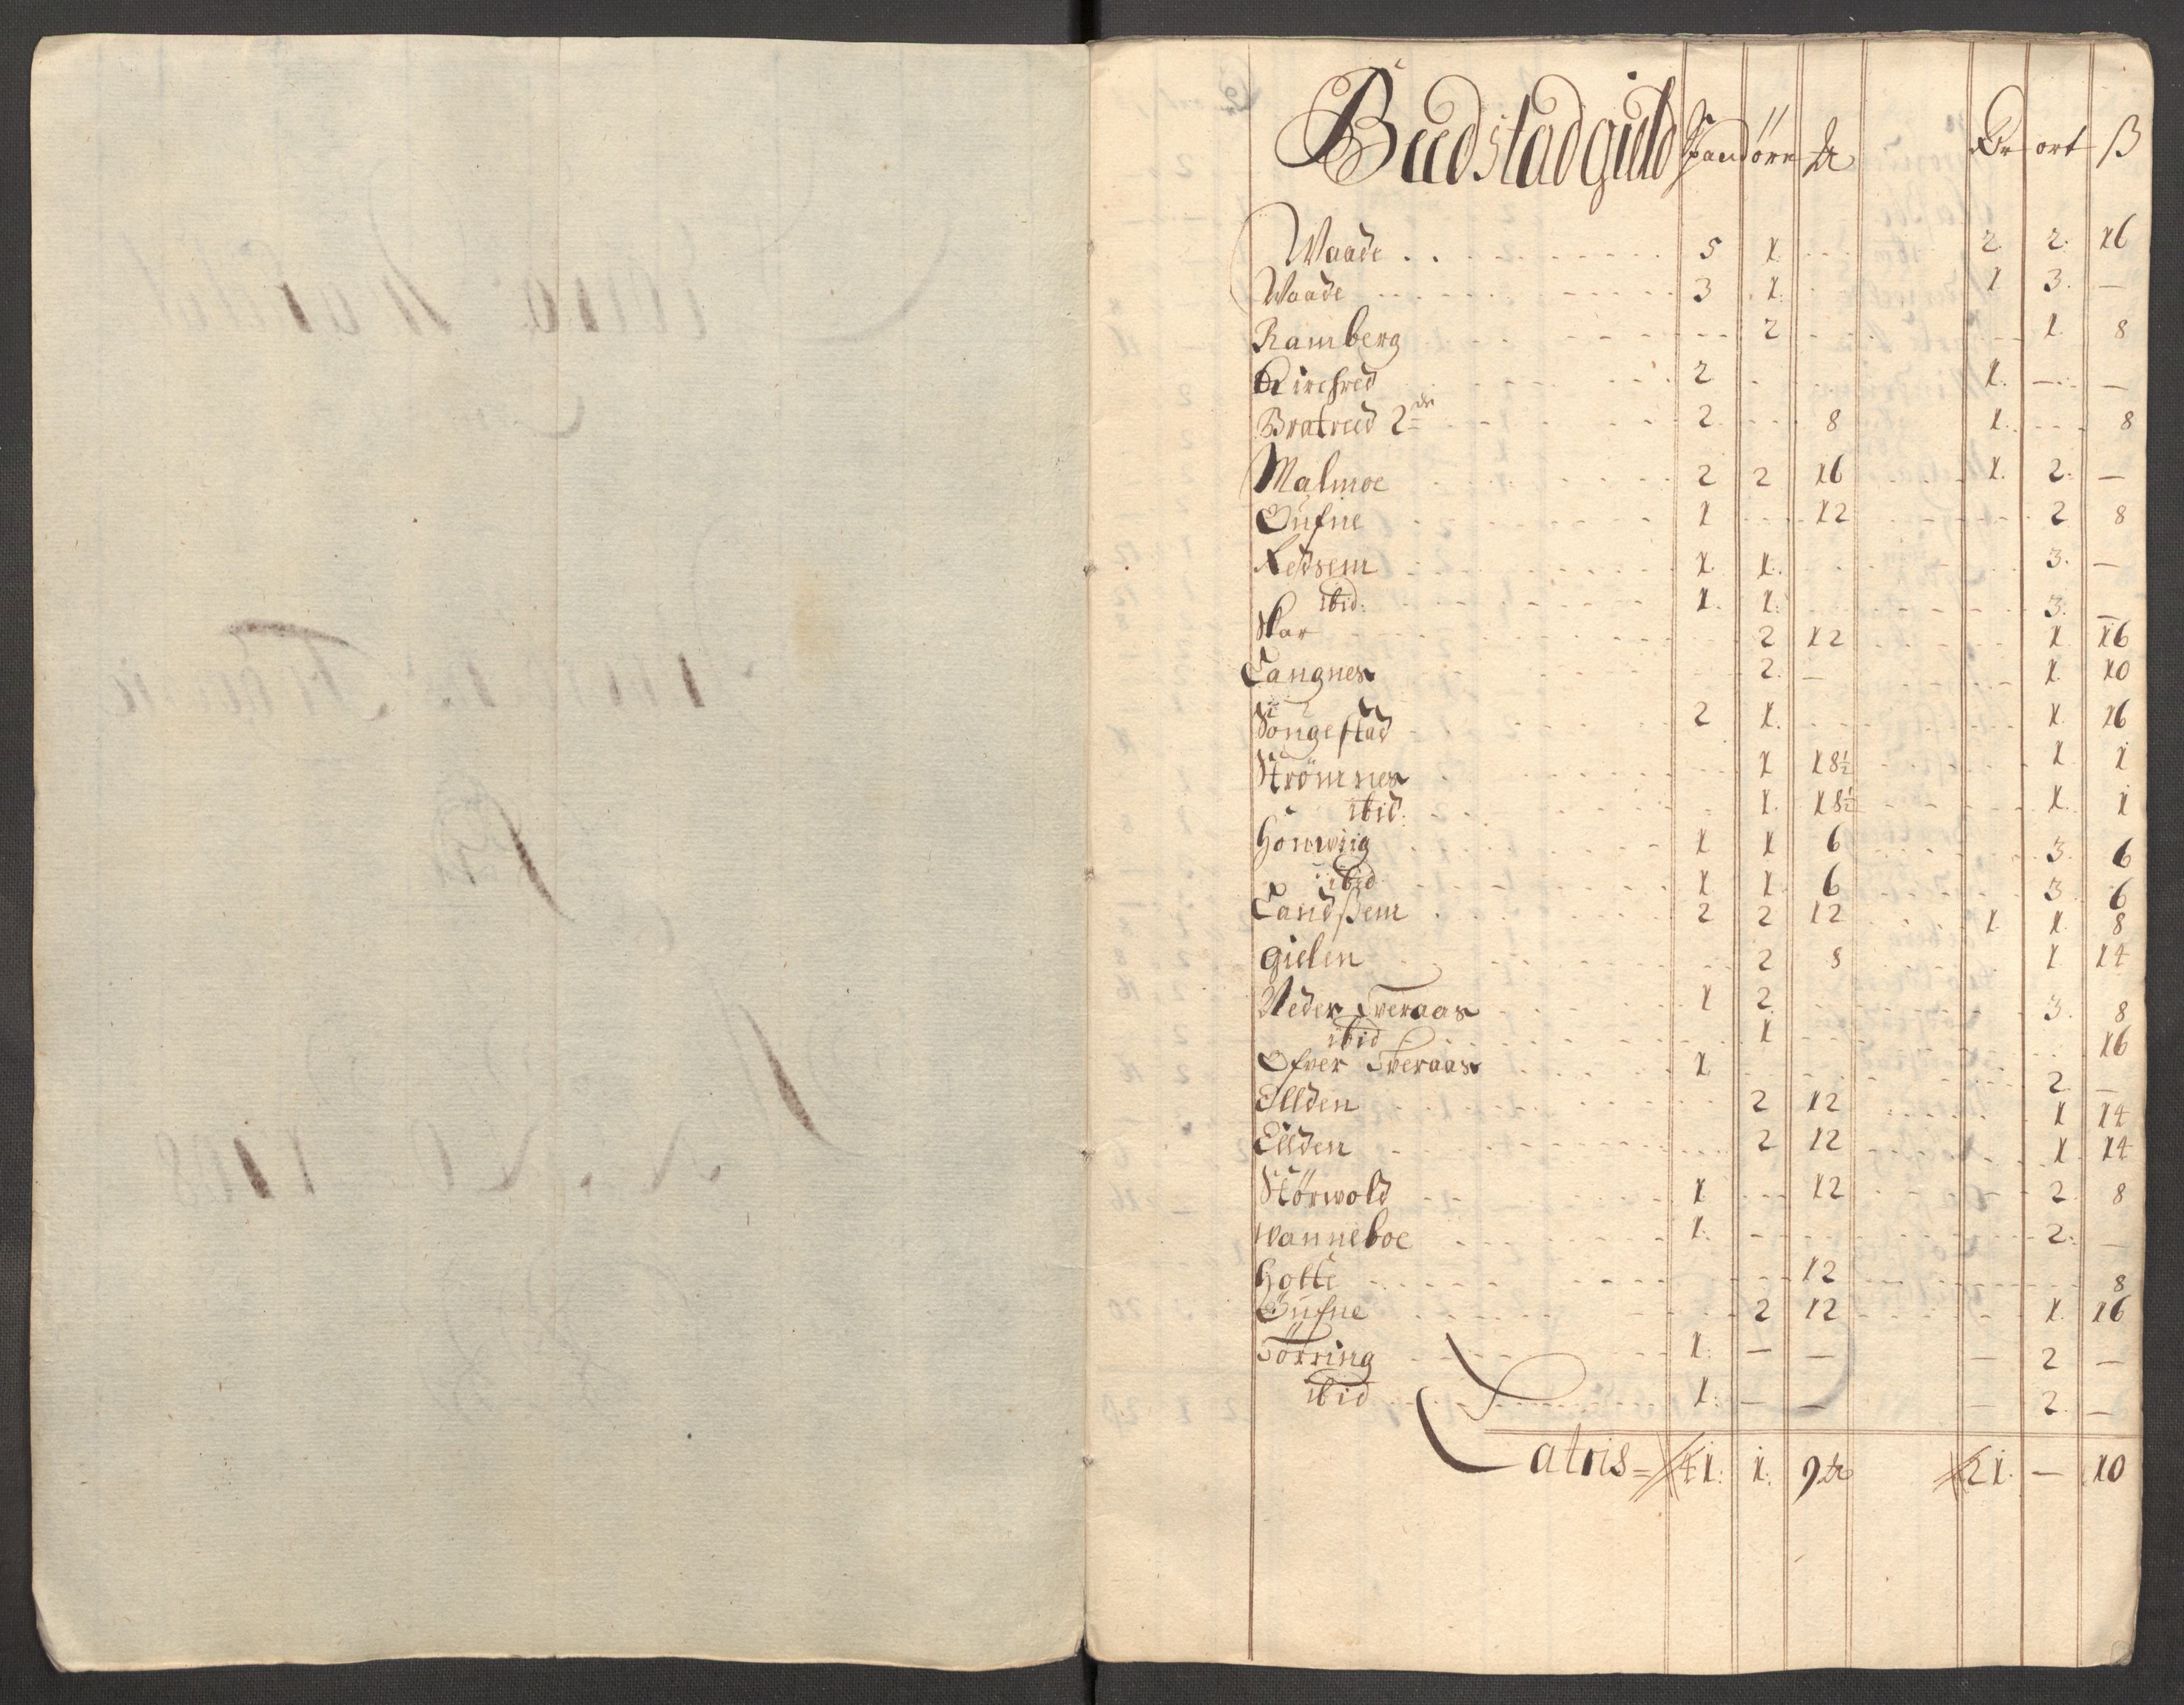 Beedstad gield Spand örr ꝉb Dr ort ß
Waade . . 5 1 . . . 2. 2. 16
Waade 3 . 1. 1 3. —
Ramberg 2 1. 8
Kirchred 2 1. — —
Bratreed 2de 2 8 1. 8
Malmoe 2 2 16 1. 2. —
Gufne 1 12 2 8
Ledsem 1. 1. 3. —
ibid: 1. 1. 3. —
Skar 2 12 1 16
Langnes 2. — 1. 10
Songestad 2 1. 1. 16
Strömnes 1 18½ 1. 1
ibid: 1. 18½ 1. 1
Honwiig 1 1 6 3. 6
ibid 1 1. 6 3 6
Landßem 2 2 12 1. 1. 8
gielen 2 8 1 14
Neder Tveraas 1 2 3. 8
ibid 1 16
Ofver Tveraas 1. 2. —
Ellden 2 12 1 14
Ellden 2 12 1 14
Störwold 1 12 2 8
Wanneboe 1. — 2. —
Holte 12 8
Gufne 2 12 1. 16
Törring 1. — — — 2 —
ibid 1. — — — 2. —
Latris = 41. 1. 9 ꝉb 21. — 10